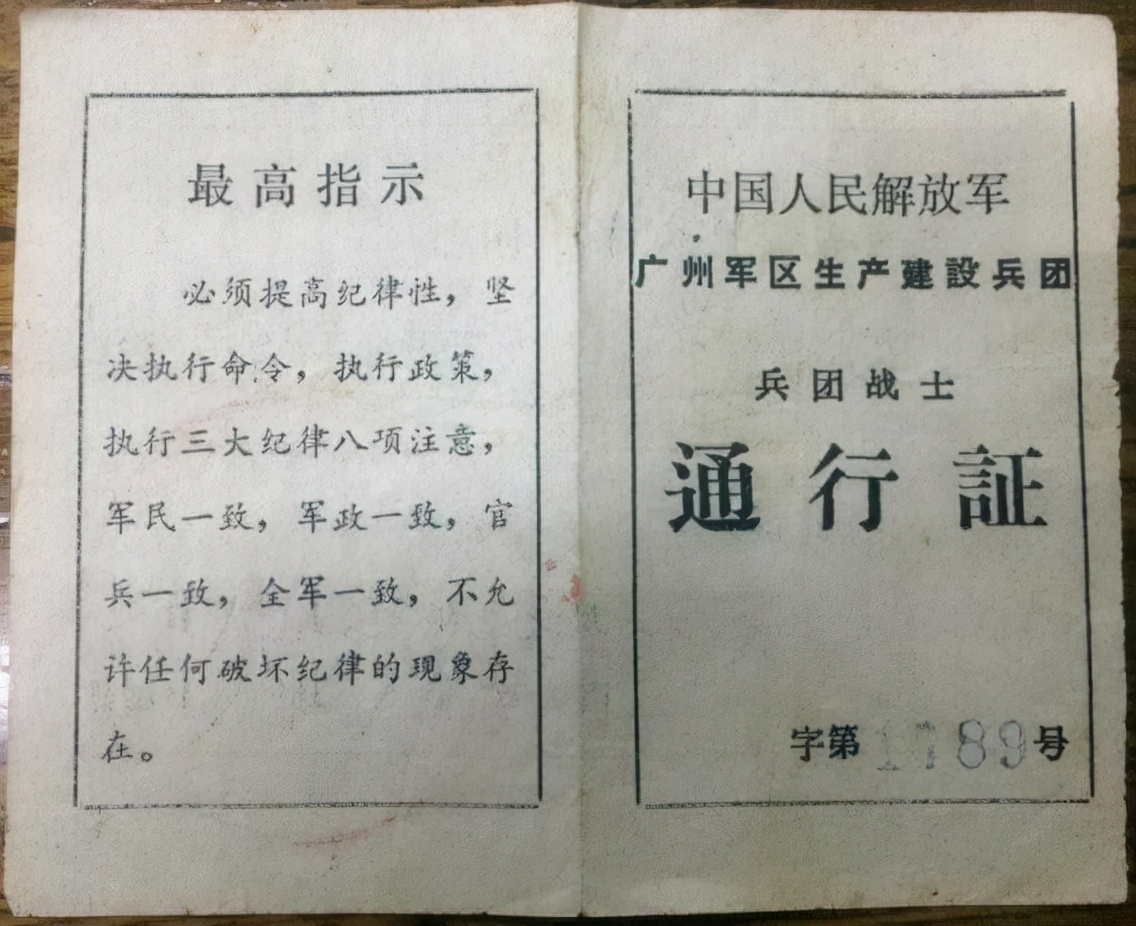 最高指示
必须提高纪律性，坚
决执行命令，执行政策，
执行三大纪律八项注意，
军民一致，军政一致，官
兵一致，全军一致，不允
许任何破坏纪律的现象存
在。
中国人民解放军
广州军区生产建設兵团
兵团战士
通行証
字第1789号